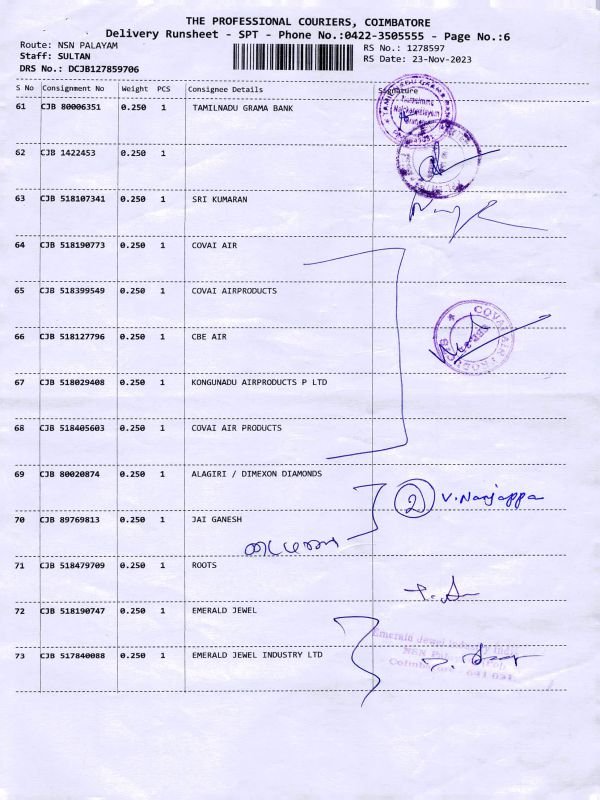 THE PROFESSIONAL COURIERS, COIMBATORE
Delivery Runsheet - SPT - Phone No.:0422-3505555 - Page No.:6
Route: NSN PALAYAM RS No.: 1278597
Staff: SULTAN RS Date: 23-Nov-2023
DRS No.: DCJB127859706
S No Consignment No Weight PCS Consignee Details Signature
61 CJB 80006351 0.250 1 TAMILNADU GRAMA BANK
62 CJB 1422453 0.250 1
63 CJB 518107341 0.250 1 SRI KUMARAN
64 CJB 518190773 0.250 1 COVAI AIR
65 CJB 518399549 0.250 1 COVAI AIRPRODUCTS
COVAI AIR
66 CJB 518127796 0.250 1 CBE AIR
67 CJB 518029408 0.250 1 KONGUNADU AIRPRODUCTS P LTD
68 CJB 518405603 0.250 1 COVAI AIR PRODUCTS
69 CJB 80020874 0.250 1 ALAGIRI / DIMEXON DIAMONDS
2 V. Nanjappa
70 CJB 89769813 0.250 1 JAI GANESH
71 CJB 518479709 0.250 1 ROOTS
72 CJB 518190747 0.250 1 EMERALD JEWEL
Emerald Jewel Industry
73 CJB 517840088 0.250 1 EMERALD JEWEL INDUSTRY LTD